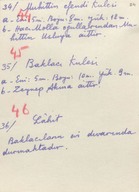 34/ Muhittin efendi Kulesi
a. Eni: 5m. Boyu: 8m. yük: 12m.
b. Hacı Molla oğullarından Mu-
hittin aittir.
45
35/ Baklacı Kulesi
a. Eni: 5m. Boyu: 10m. yük: 9m.
b. Zeynep Akına aittir.
46
36/ Lâhit
Baklacıların evi duvarında
durmaktadır.